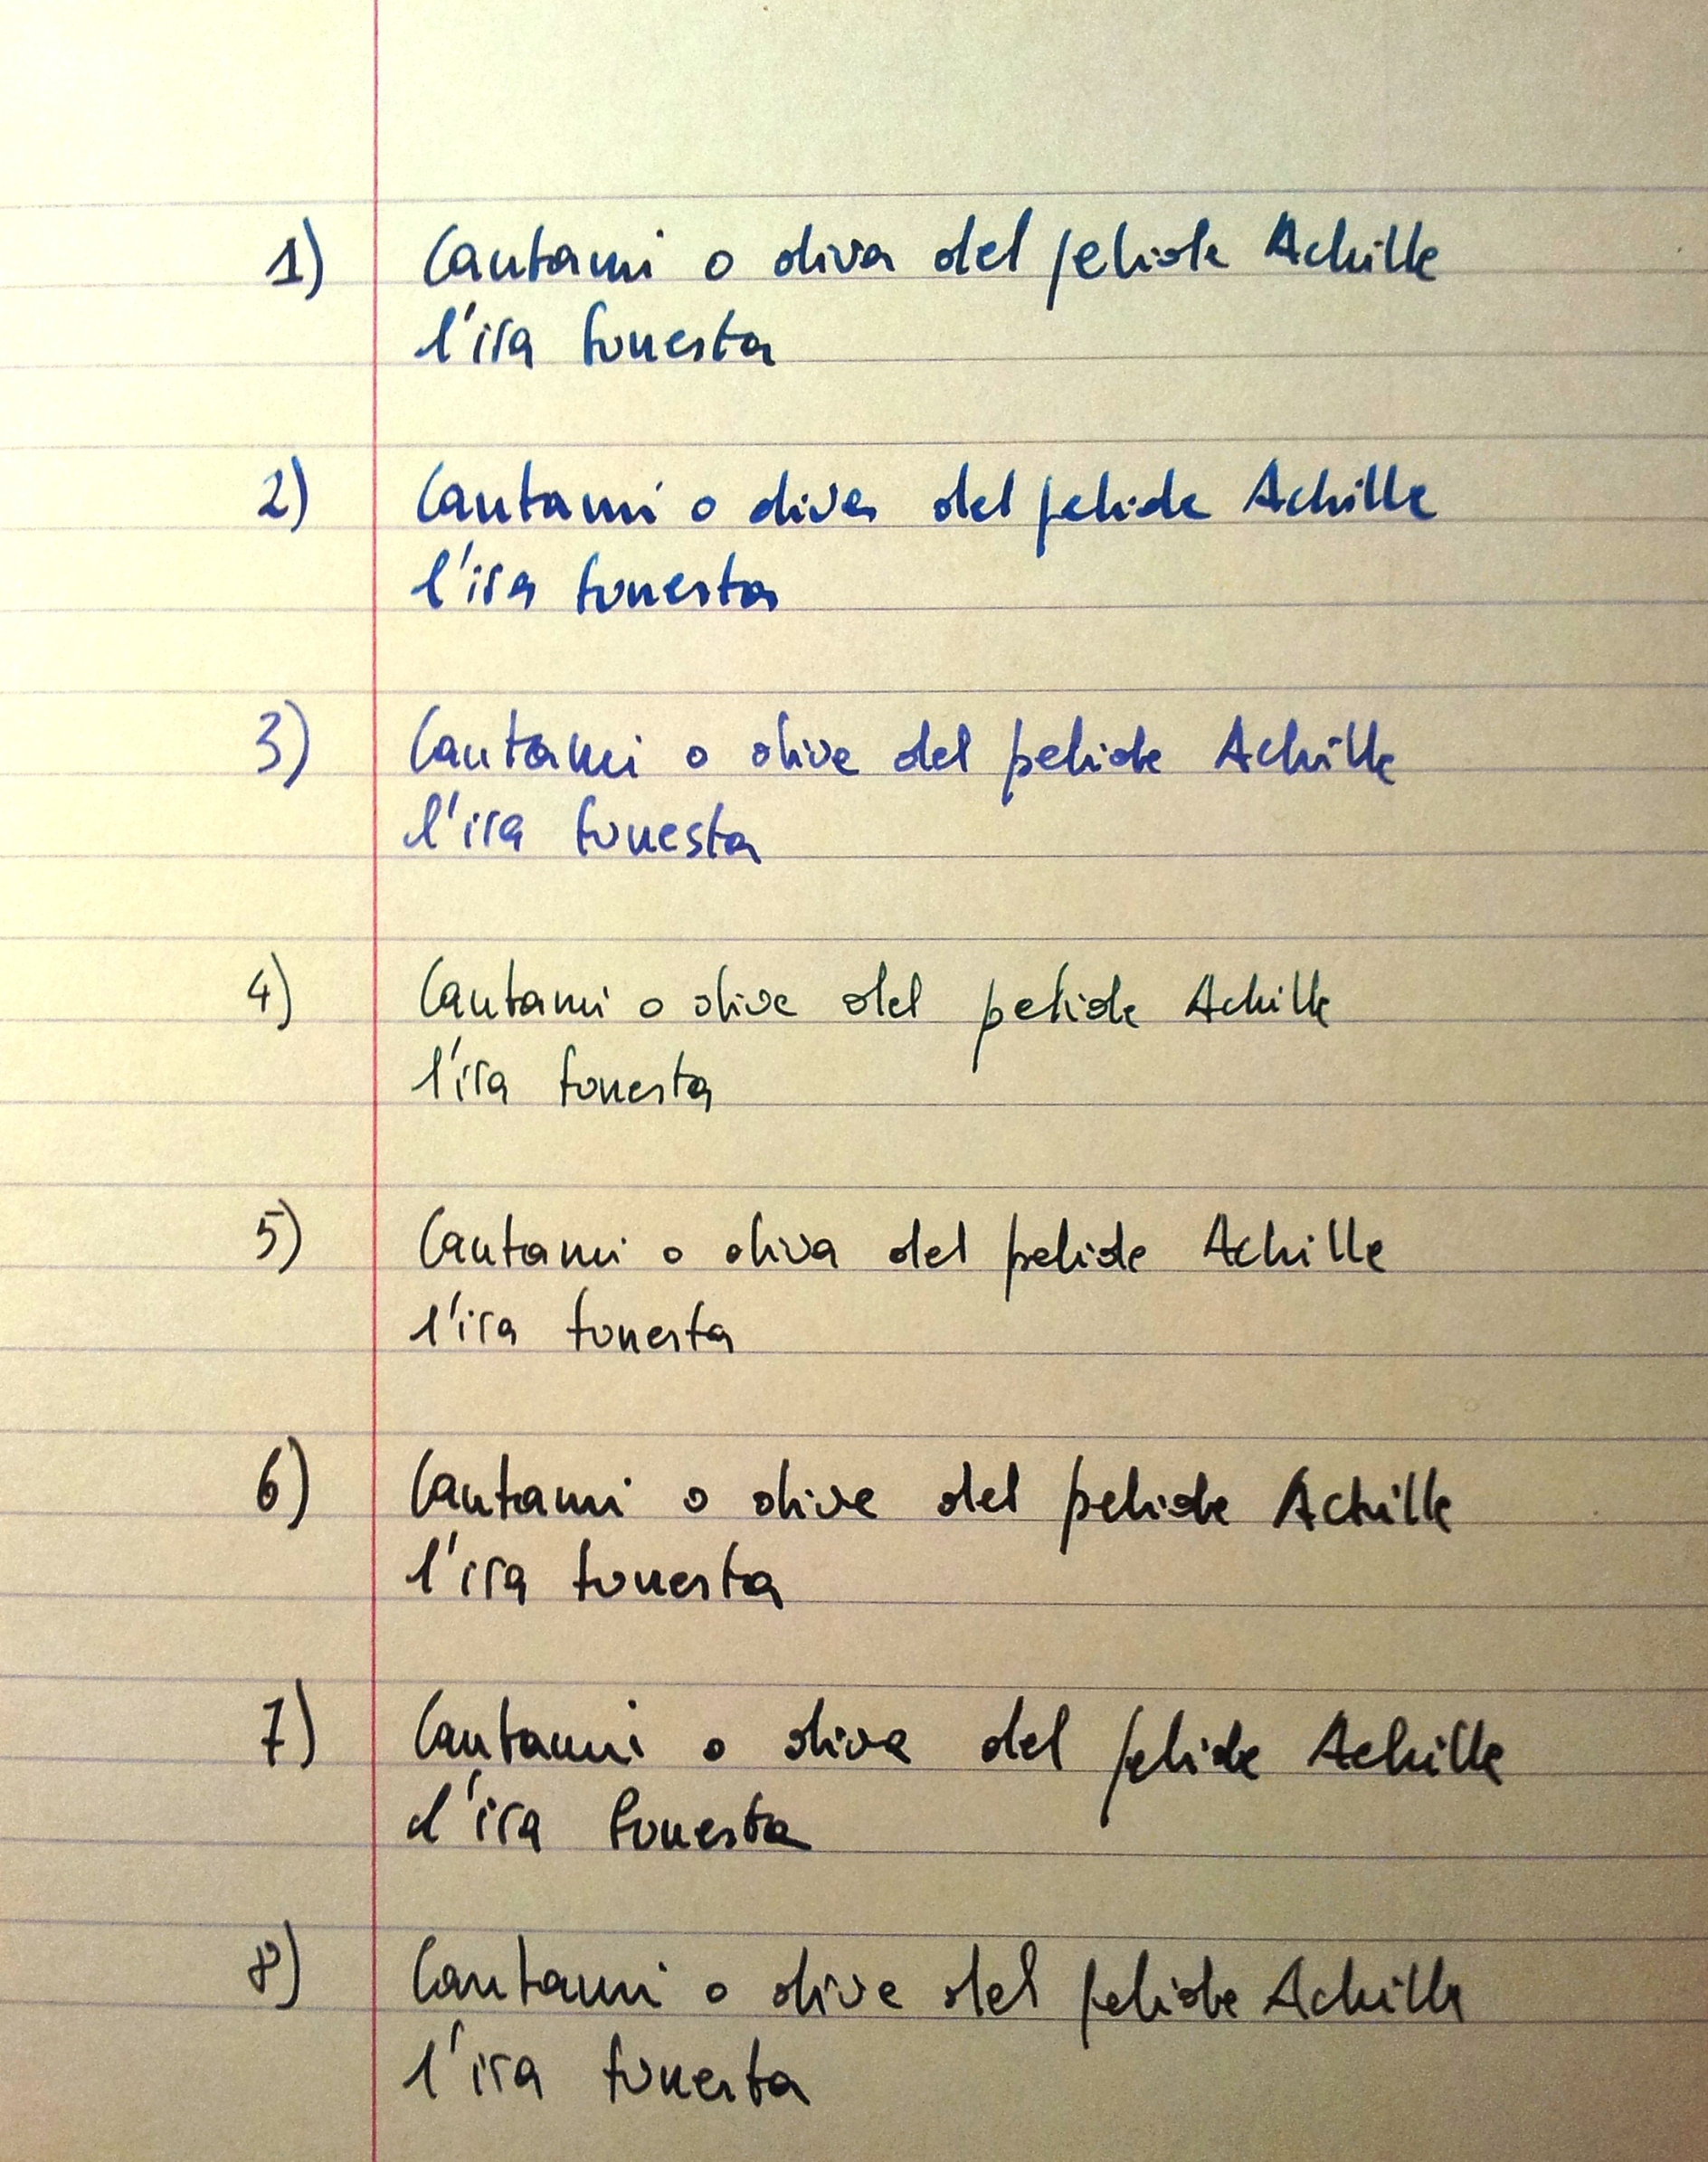 1) Cantami o diva del pelide Achille
l'ira funesta
2) Cantami o diva del pelide Achille
l'ira funesta
3) Cantami o diva del pelide Achille
l'ira funesta
4) Cantami o diva del pelide Achille
l'ira funesta
5) Cantami o diva del pelide Achille
l'ira funesta
6) Cantami o diva del pelide Achille
l'ira funesta
7) Cantami o diva del pelide Achille
l'ira funesta
8) Cantami o diva del pelide Achille
l'ira funesta